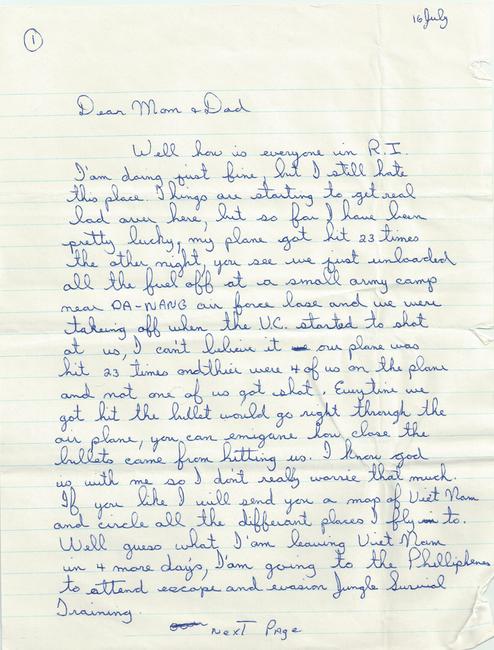 16 July
1
Dear Mom & Dad
Well how is everyone in R.I.
I'am doing just fine, but I still hate
this place. Things are starting to get real
bad over here, but so far I have been
pretty lucky, my plane got hit 23 times
the other night, you see we just unloaded
all the fuel off at a small army camp
near DA-NANG air force base and we were
takeing off when the V.C. started to shot
at us, I can't believe it our plane was
hit 23 times and their were 4 of us on the plane
and not one of us got shot. Everytime we
got hit the bullet would go right through the
air plane, you can emigane how close the
bullets came from hitting us. I know god
is with me so I don't really worrie that much.
If you like I will send you a map of Viet Nam
and circle all the differant places I fly to.
Well guess what, I'am leaving Viet Nam
in 4 more days, I'am going to the Philliphenes
to attend escape and evasion Jungle Survival
Training.
Next Page